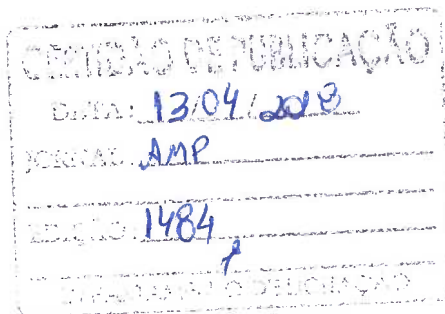 CERTIDÃO DE PUBLICAÇÃO
DATA: 13/04/2018
JORNAL: AMP
EDIÇÃO: 1484